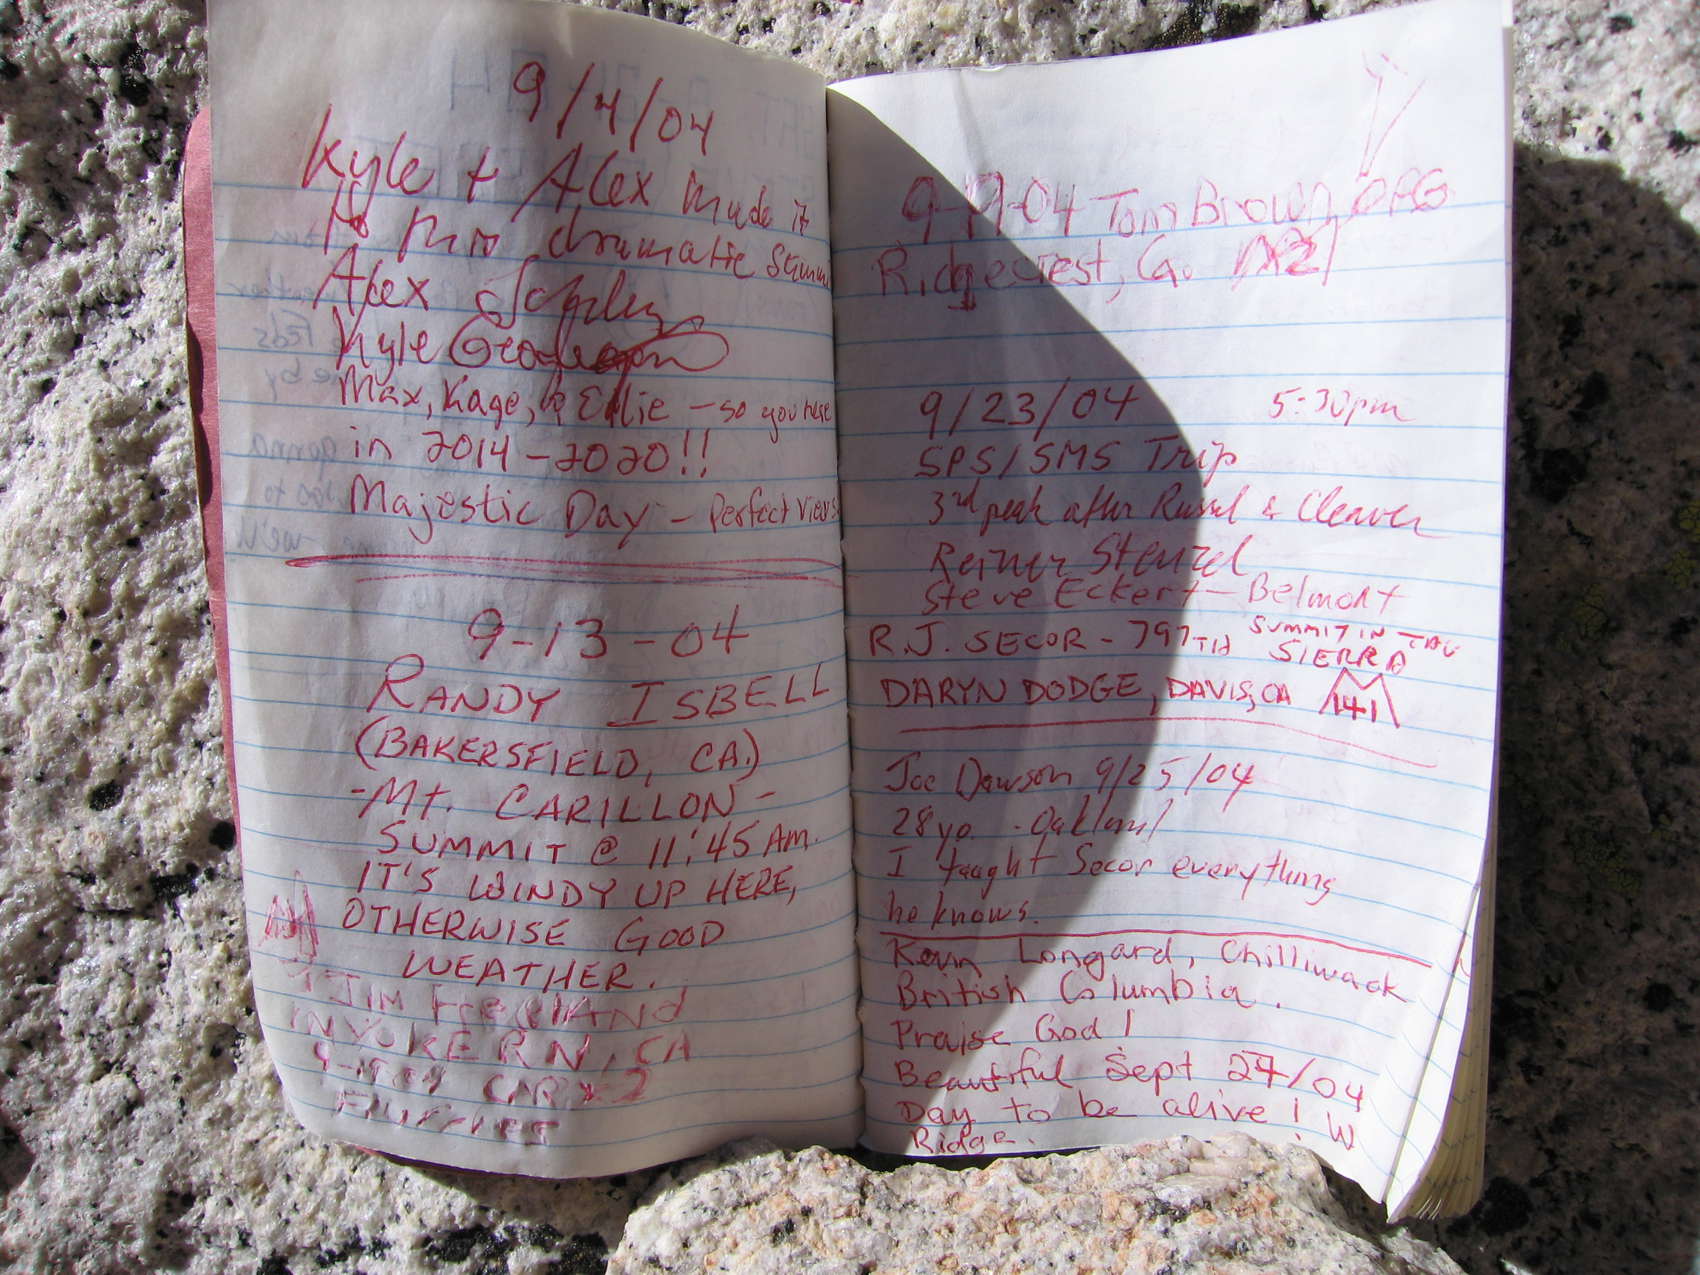 9/4/04
Kyle + Alex made it
to this dramatic summi
Alex
Kyle
Max, Kage, & Ellie - so you here
in 2014-2020!!
Majestic Day - Perfect Views
9-13-04
RANDY ISBELL
(BAKERSFIELD, CA.)
-Mt. CARILLON-
SUMMIT @ 11:45 AM.
IT'S WINDY UP HERE,
OTHERWISE GOOD
WEATHER.
JIM FREELAND
INYOKERN, CA
9-19-04 Tom Brown,
Ridgecrest, Ca.
9/23/04 5:30pm
SPS/SMS Trip
3rd peak after Russel & Cleaver
Reiner Stenzel
Steve Eckert - Belmont
R.J. SECOR - 797TH SUMMIT IN THE
SIERRA
DARYN DODGE, DAVIS, CA 141
Joe Dawson 9/25/04
28 yo. - Oakland
I taught Secor everything
he knows.
Kevin Longard, Chilliwack
British Columbia.
Praise God!
Beautiful Sept 27/04
Day to be alive! W
Ridge.